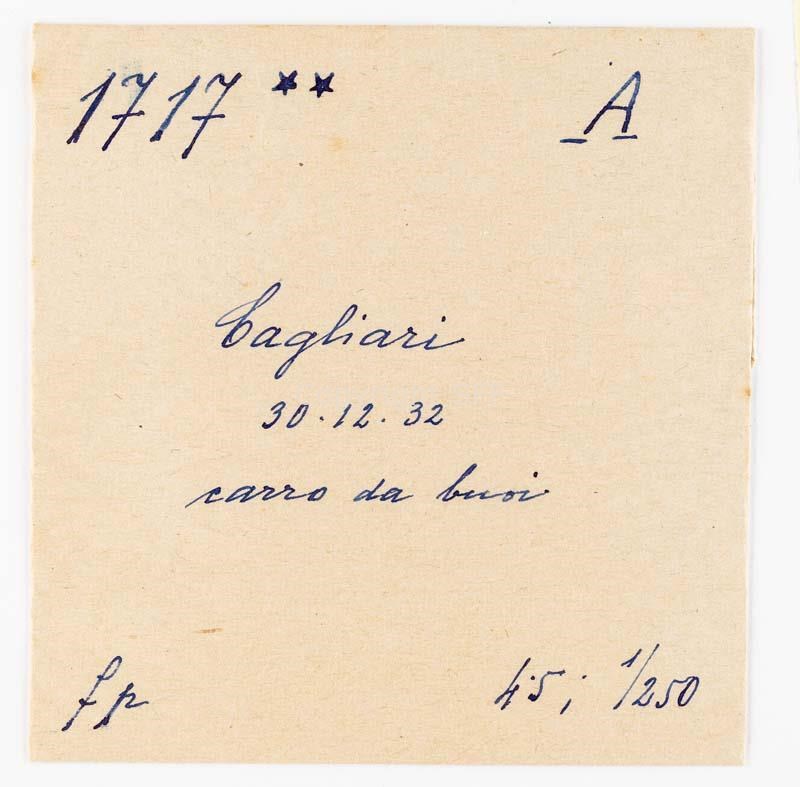 1717 ** A
Cagliari
30.12.32
carro da buoi
fp 4·5; 1/250